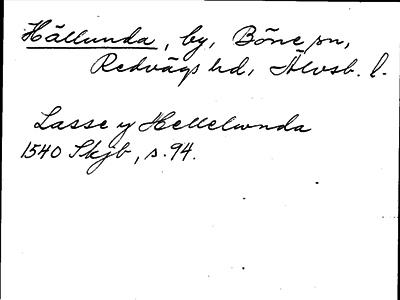 Hällunda, by, Böne sn,
Redvägs hd, Älvsb. l.
Lasse y Hellelwnda
1540 Skjb, s. 94.